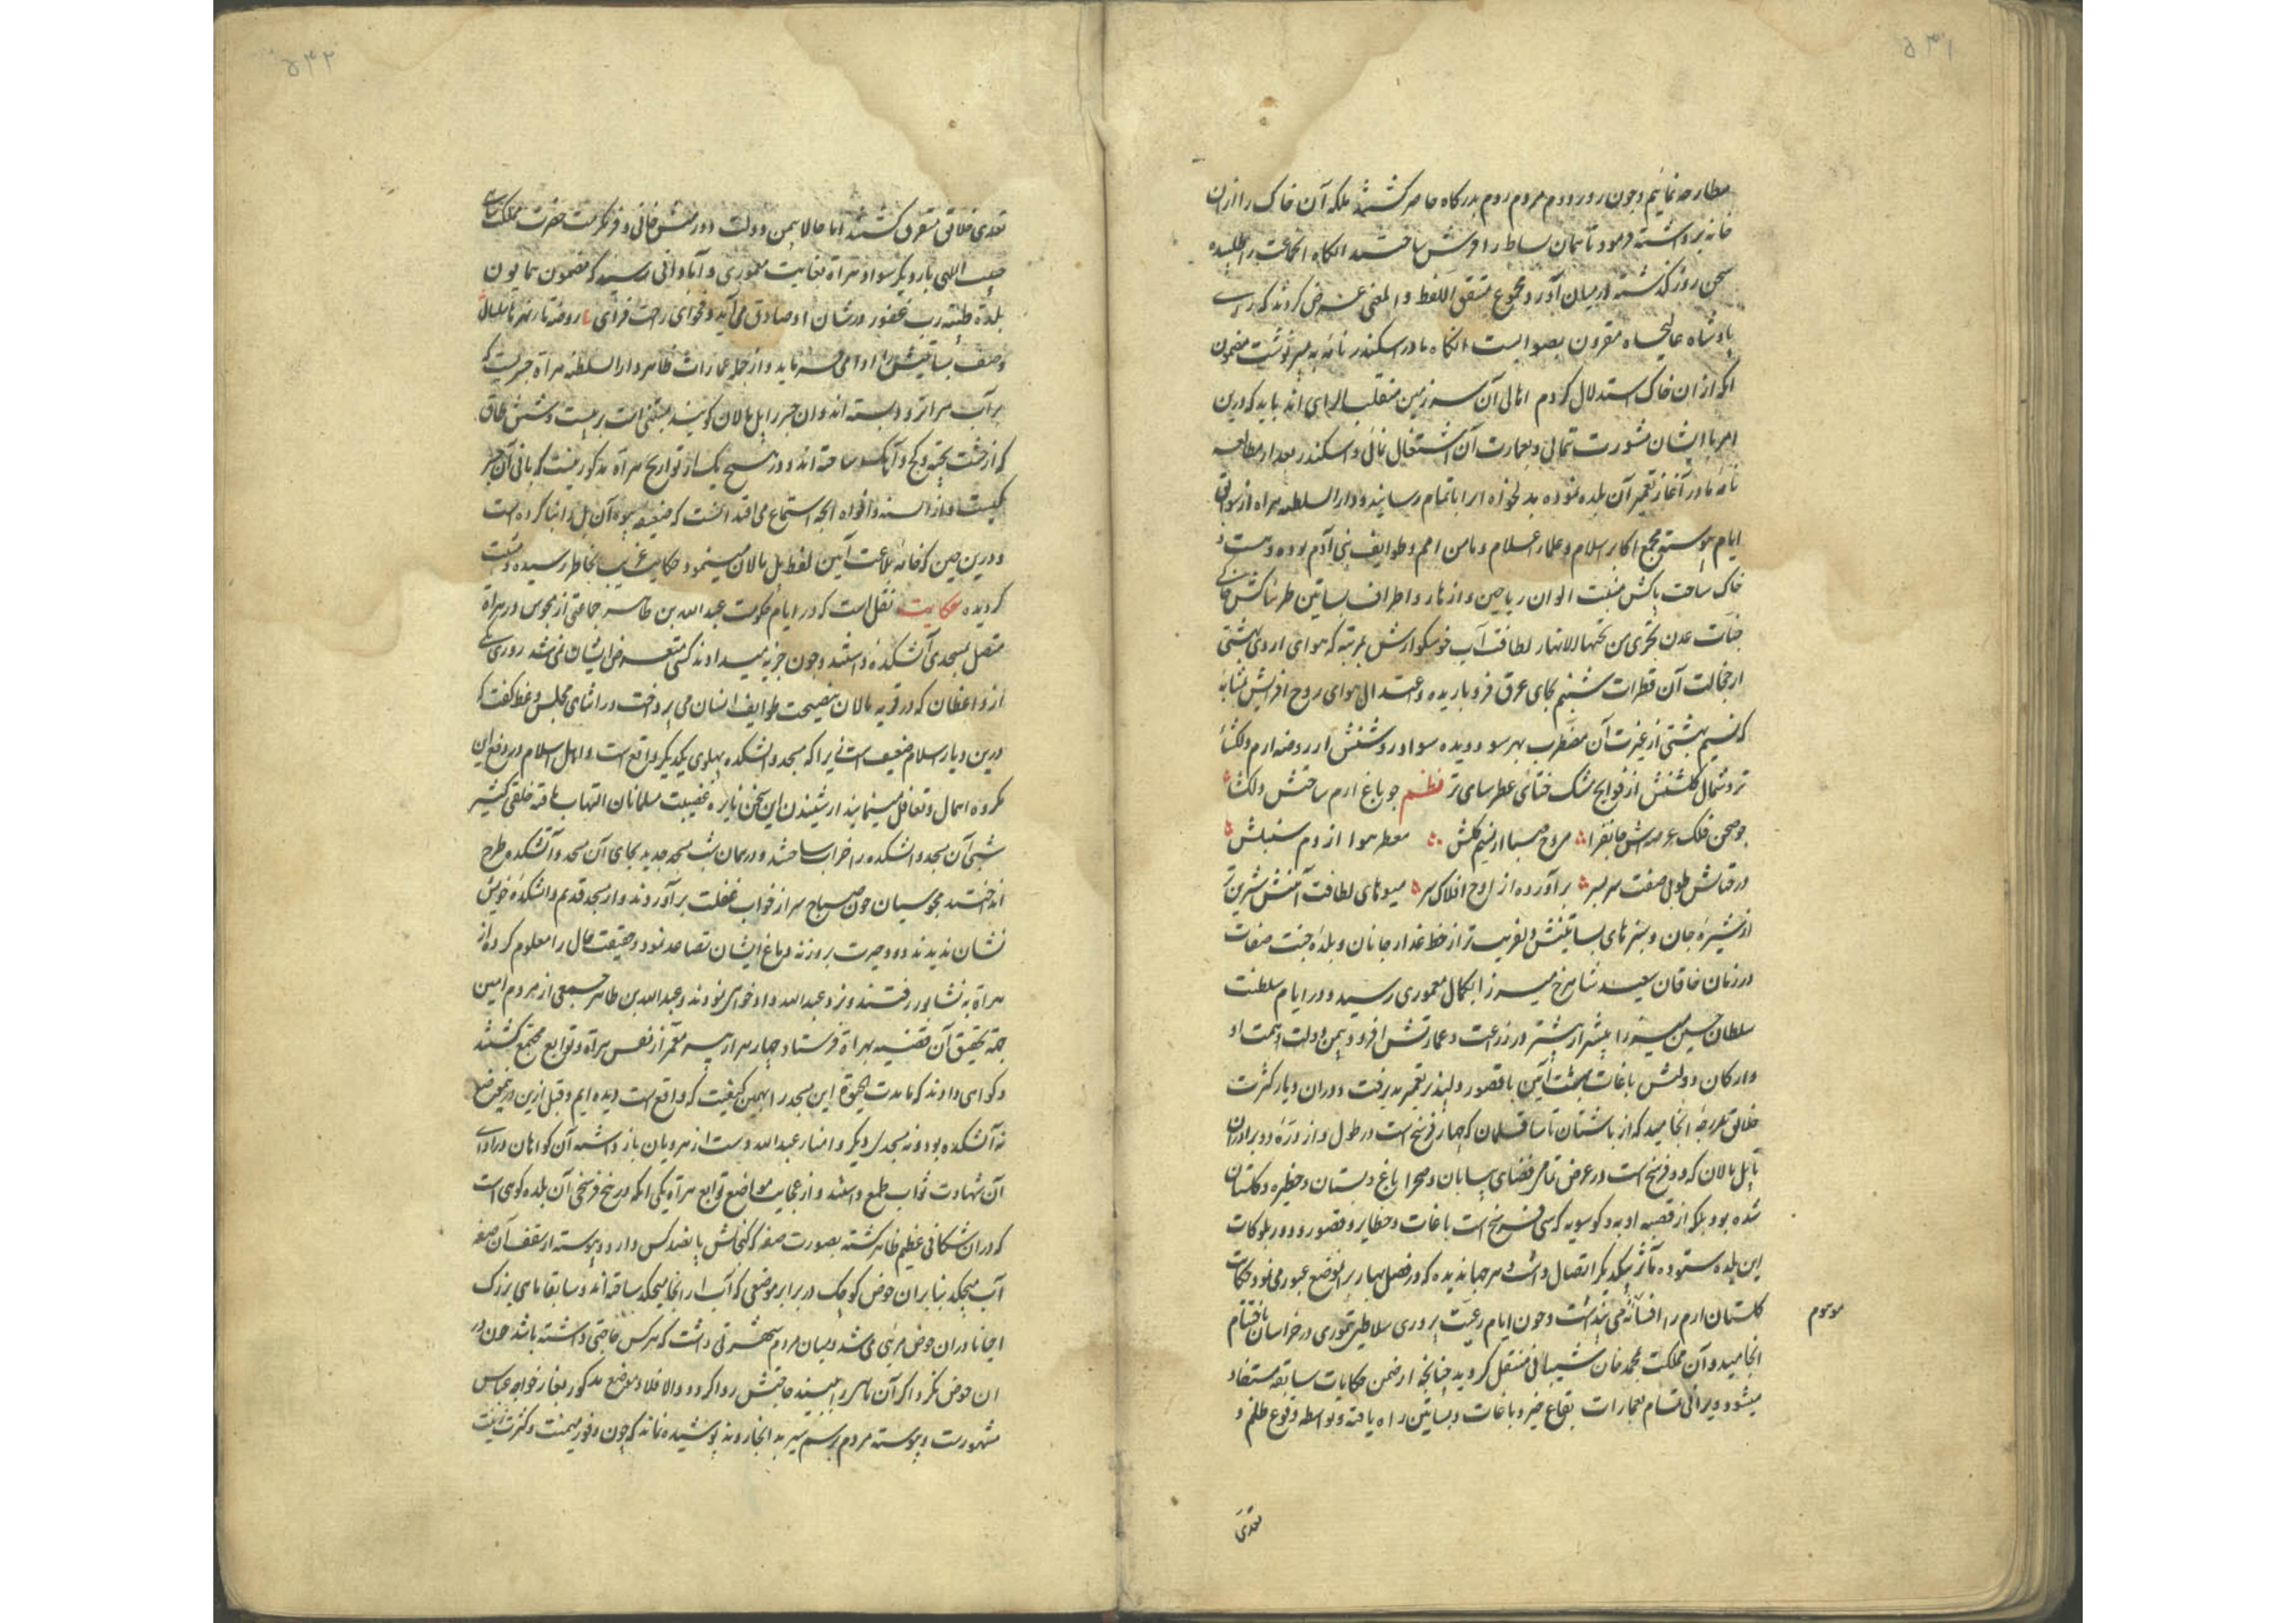 ۵۳۱
مطارحه نمائیم و چون روز دوم مردم روم بدرگاه حاضر گشتند ملکه آن خاک را از ان
خانه برداشته فرمود تا همان بساط را فرش ساختند انگاه انجماعت را طلبیده
سخن روز گذشته در میان آورد و مجموع متفق اللفظ و المعنی عرض کردند که رای
پادشاه عالیجاه مقرون بصوابست انگاه مادر اسکندر نامه به پسر نوشت مضمون
انکه از ان خاک استدلال کردم اهالی آن سرزمین متقلب الرای اند باید که درین
امر با ایشان مشورت ننمائی و بعمارت آن اشتغال نمائی و اسکندر بعد از مطالعه
نامه مادر آغاز تعمیر آن بلده نموده بدلخواه انرا باتمام رسانید و دار السلطنه هراة از سوابق
ایام پیوسته مجمع اکابر اسلام و علمای اعلام و مامن امم و طوایف بنی آدم بوده و هست و
خاک ساحت پاکش منبت الوان ریاحین و ازهار و اطراف بساتین طربناکش
جنات عدن تجری من تحتها الانهار لطافت آب خوشگوارش بمرتبه که هوای اردی بهشتی
از خجالت آن قطرات شبنم بجای عرق فرو باریده و اعتدال هوای روح افزایش بمثابه
که نسیم بهشتی از غیرت آن مضطرب بهر سو دویده سواد روشنش از روضه ارم دلکشا
تر و شمال گلشنش از فوایح مشک ختائی عطرسای تر نظم چو باغ ارم ساحتش دلکشا
چو صحن فلک عرصه‌اش جانفزا مروح صبا از نسیم گلش معطر هوا از دم سنبلش
درختانش طوبی صفت سر بسر بر آورده از اوج افلاک سر میوهای لطافت آئینش شیرین تر
از شیره جان و سبزهای بساتینش دلفریب تر از خط عذار جانان و بلده جنت صفات
در زمان خاقان سعید شاهرخ میرزا بکمال معموری رسید و در ایام سلطنت
سلطان حسین میرزا بیشتر از پیشتر در زراعت و عمارتش افزود و بیمن دولت و همت او
و ارکان دولتش باغات بهشت آئین با قصور دلپذیر تعمیر پذیرفت و دوران دیار کثرت
خلایق بدرجه انجامید که از باشتان تا ساقسلمان که چهار فرسخ است در طول و از دره دو برادران
تا پل مالان که دو فرسخ است در عرض تمامی فضای بیابان و صحرا باغ و بستان و حظیره و گلستان
شده بود بلکه از قصبه اوبه و کوسویه که سی فرسخ است باغات و حظایر و قصور و دور بلوکات
این بلده ستوده مآثر بیکدیگر اتصال داشت و هر جهاندیده که در فصل بهار بر انموضع عبور می نمود حکایت
گلستان ارم را افسانه می پنداشت و چون ایام رعیت پروری سلاطین تیموری در خراسان باختتام
موسوم
انجامید و آن مملکت بمحمد خان شیبانی منتقل گردید چنانچه از ضمن حکایات سابقه مستفاد
میشود ویرانی تمام بعمارات بقاع خیر و باغات و بساتین راه یافته و بواسطه وقوع ظلم و
تعدی
۵۳۲
تعدی خلایق متفرق گشتند اما حالا بیمن دولت دورمش خانی و فر مکرمت حضرت مملکت پناهی
حبیب اللهی بار دیگر سواد هراة بغایت معموری و آبادانی رسید که مضمون همایون
بلدة طیبة و رب غفور در شان او صادق می آید و فحوای راحت فزای روضة ماء نهرها سلسال
وصف بساتینش را ادا می فرماید و از جمله عمارات ظاهر دار السلطنه هراة جسریست که
بر آب هرات رود بسته اند و ان جسر را پل مالان گویند مبتنی است بر بیست و شش طاق
که از خشت پخته و گچ و آهک ساخته اند و در هیچ یک از تواریخ هراة مذکور نیست که بانی آن جسر
کیست و از السنه و افواه انچه استماع می افتد انست که ضعیفه بیوه آن پل را بنا کرده است
و درین حین که خامه بلاغت آئین لفظ پل مالان می نمود حکایت غریب بخاطر رسیده مثبت
گردیده حکایت نقل است که در ایام حکومت عبد الله بن طاهر جماعتی از مجوس در هراة
متصل بمسجدی آتشکده داشتند و چون جزیه میدادند کسی متعرض ایشان نمی شد روزی یکی
از واعظان که در قریه مالان بنصیحت طوایف انسان می پرداخت در اثنای مجلس وعظ گفت که
درین دیار اسلام ضعیف است زیرا که مسجد و اتشکده پهلوی یکدیگر واقع است و اهل اسلام در دفع این
مکروه اهمال و تغافل مینمایند از شنیدن این سخن نایره عصبیت مسلمانان التهاب یافته خلقی کثیر
شبی آن مسجد و اتشکده را خراب ساختند و در همان شب مسجد جدید بجای آن مسجد و آتشکده طرح
انداختند مجوسیان چون صباح سر از خواب غفلت بر آوردند و از مسجد قدیم و اتشکده خویش
نشان ندیدند دود حیرت بروزنه دماغ ایشان تصاعد نمود و حقیقت حال را معلوم کرده از
هراة به نشابور رفتند و نزد عبد الله دادخواهی نمودند و عبد الله بن طاهر جمعی از مردم امین
جهة تحقیق آن قضیه بهراة فرستاد و چهار هزار پیر معمر از نفس هراة و توابع مجتمع گشتند
و گواهی دادند که ما مدت الحیوة این مسجد را بهمین کیفیت که واقع است دیده ایم و قبل ازین درینموضع
نه آتشکده بود و نه مسجدی دیگر و امنای عبد الله دست از هرویان باز داشته آن گواهان در ادای
آن شهادت ثواب طمع داشتند و از عجایب مواضع توابع هراة یکی انکه در پنج فرسخی آن بلده کوهی است
که در ان شکافی عظیم ظاهر گشته بصورت صفه که گنجایش پانصد کس دارد و پیوسته از سقف آن صفه
آب میچکد بنا بر ان حوض کوچک در برابر موضعی که آب از انجا میچکد ساخته اند و سابقا ماهی بزرک
احیانا در ان حوض مرئی می شد و میان مردم شهرتی داشت که هر کس حاجتی داشته باشد چون در
ان حوض نگرد اگر آن ماهی را ببیند حاجتش روا گردد و الا فلا و موضع مذکور بغار خواجه عباس
مشهورست و پیوسته مردم برسم سیر به انجا روند پوشیده نماند که چون وفور میمنت و کثرت